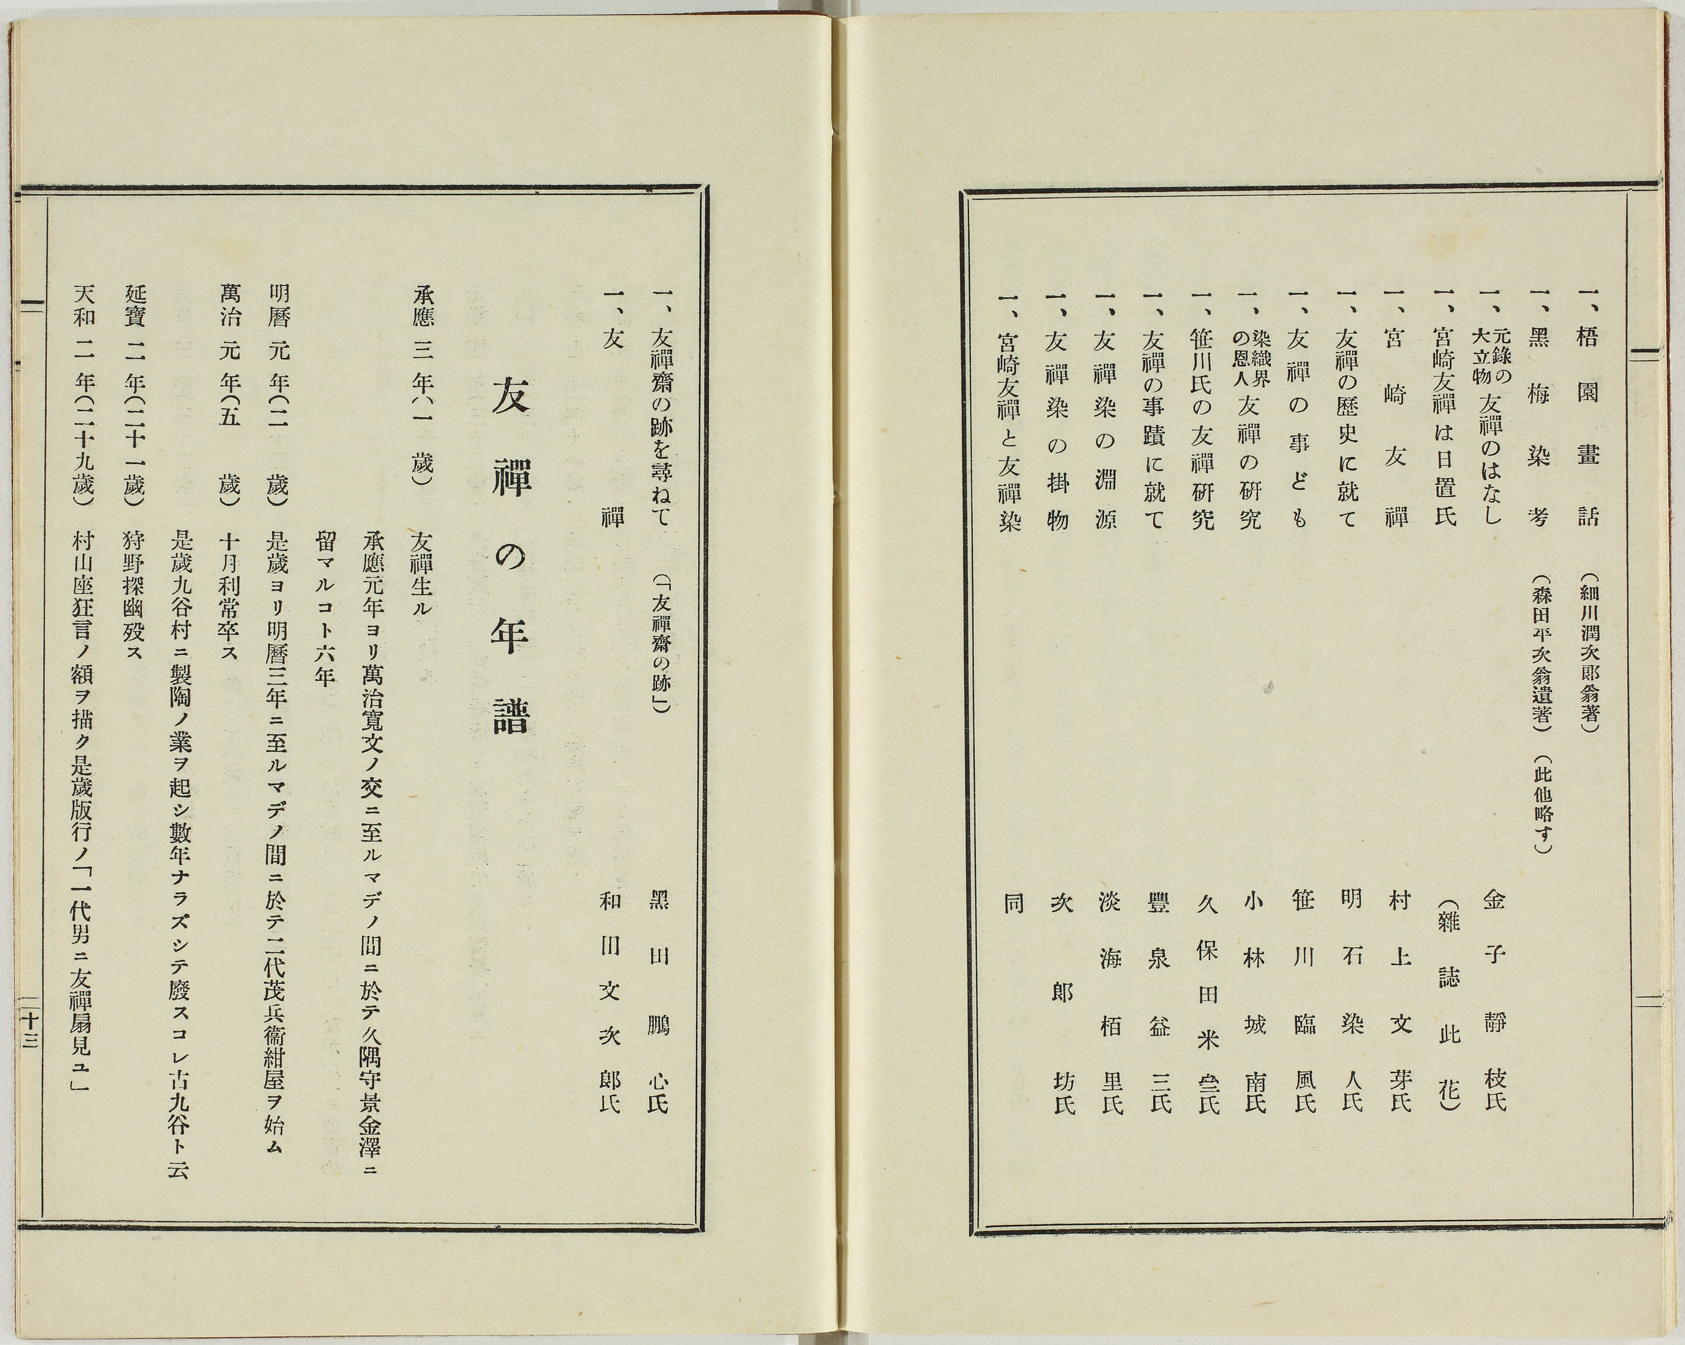 一、梧園畫話 （細川潤次郎翁著）
一、黑梅染考 （森田平次翁遺著）（此他略す）
一、元錄の大立物 友禪のはなし 金子靜枝氏
一、宮崎友禪は日置氏 （雜誌此花）
一、宮崎友禪 村上文芽氏
一、友禪の歷史に就て 明石染人氏
一、友禪の事ども 笹川臨風氏
一、染織界の恩人 友禪の硏究 小林城南氏
一、笹川氏の友禪硏究 久保田米斎氏
一、友禪の事蹟に就て 豐泉益三氏
一、友禪染の淵源 淡海栢里氏
一、友禪染の掛物 次郞坊氏
一、宮崎友禪と友禪染 同
一、友禪齋の跡を尋ねて （「友禪齋の跡」） 黑田鵬心氏
一、友禪 和田文次郞氏
友禪の年譜
承應三年（一歲） 友禪生ル
承應元年ヨリ萬治寬文ノ交ニ至ルマデノ間ニ於テ久隅守景金澤ニ
留マルコト六年
明曆元年（二歲） 是歲ヨリ明曆三年ニ至ルマデノ間ニ於テ二代茂兵衞紺屋ヲ始ム
萬治元年（五歲） 十月利常卒ス
是歲九谷村ニ製陶ノ業ヲ起シ數年ナラズシテ廢スコレ古九谷ト云
延寶二年（二十一歲） 狩野探幽歿ス
天和二年（二十九歲） 村山座狂言ノ額ヲ描ク是歲版行ノ「一代男ニ友禪扇見ユ」
二十三